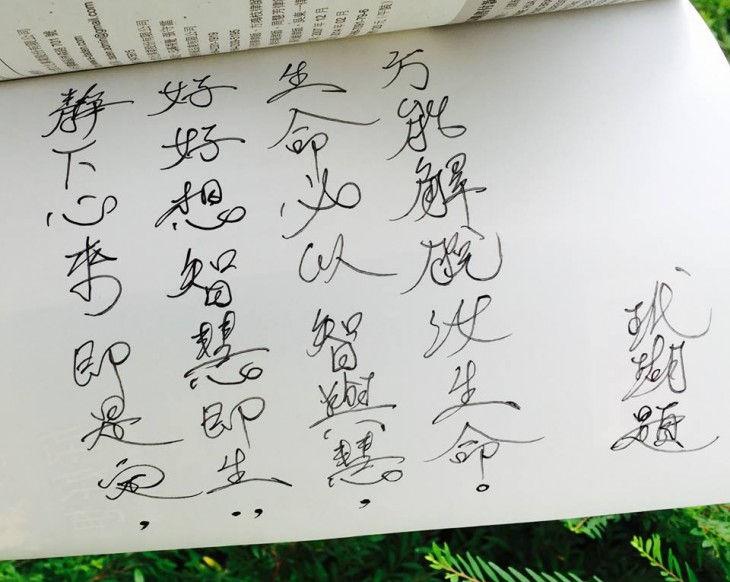 靜下心來即是定，
好好想智慧即生；
生命必以智與慧，
方能解脫汝生命。
玳瑚題